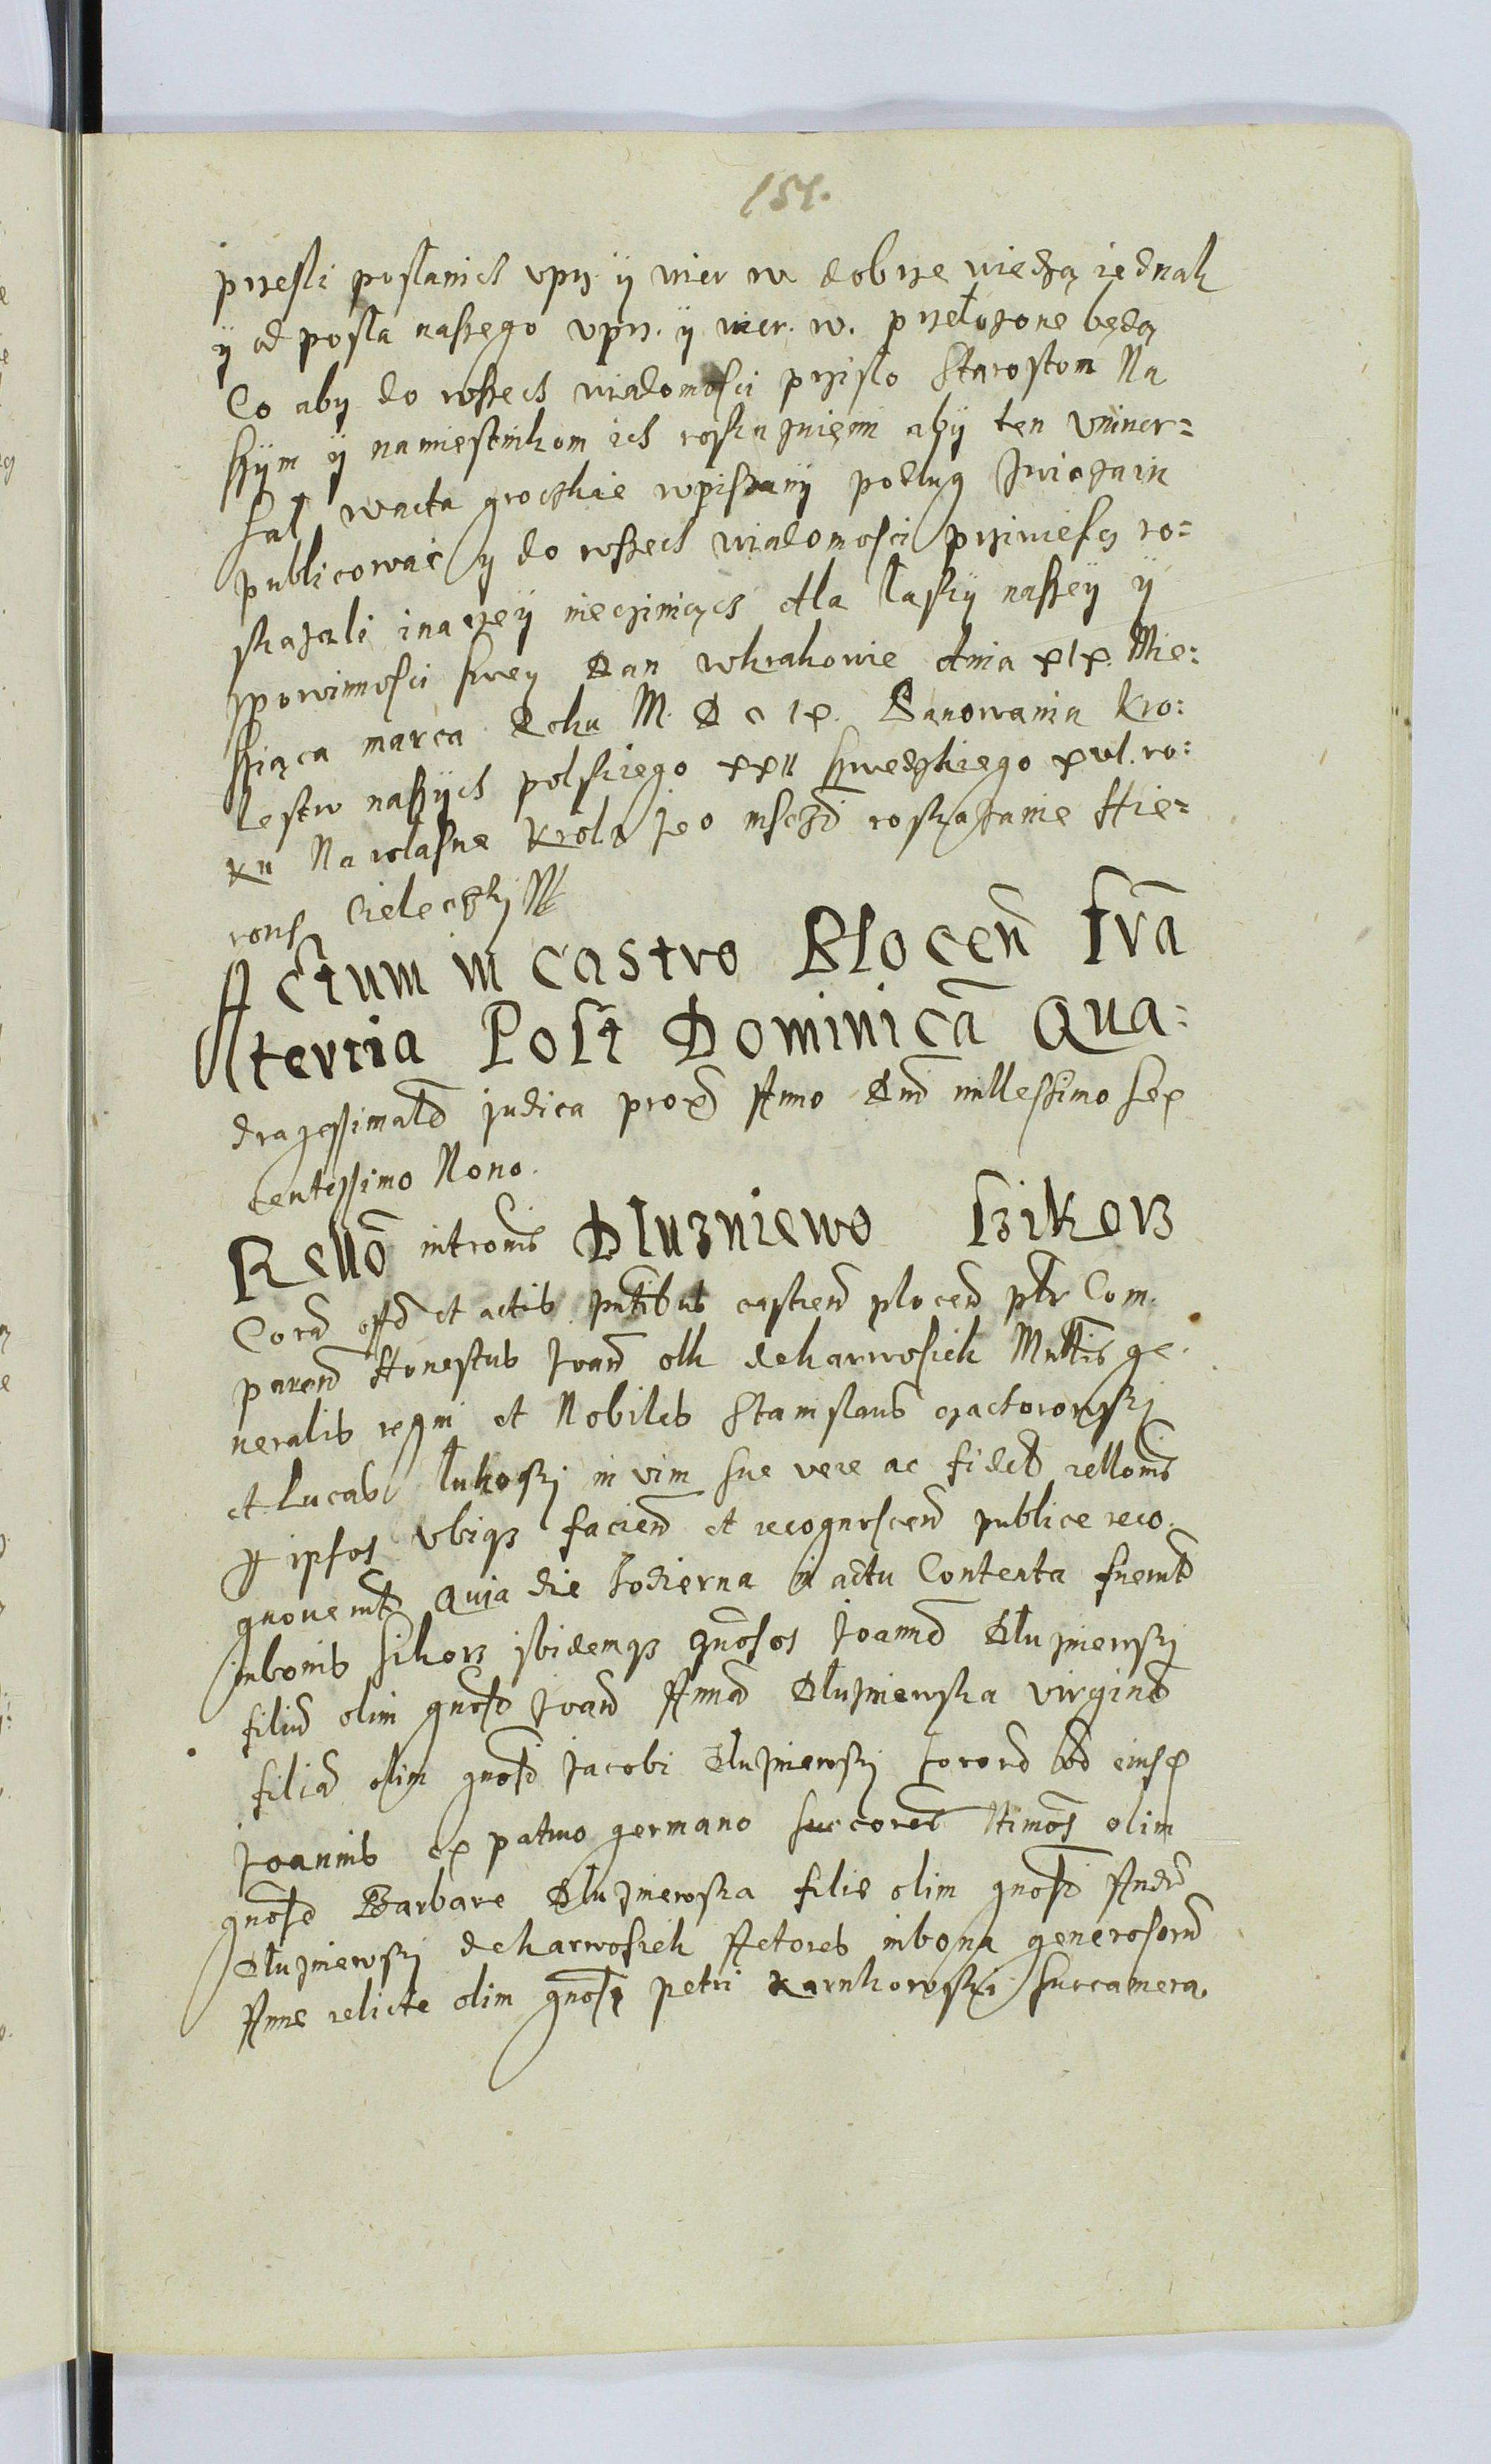 151.
przesłi posłanich vprz. ÿ wier w. dobrze wiedzą iednak
ÿ od posła naszego vprz. ÿ wier. w. przełozone będą
Co aby do wszech wiadomosci przisło Starostom Na
szÿm ÿ namiestnikom ich roskazuiemi abÿ ten Vniuer=
sał wacta grodzkie wpiszanÿ podlug zwiczaiu
publicowac y do wszech wiadomosci przÿwiescz ro=
skazali inaczeÿ nieczinicz dla łaskÿ naszeÿ ÿ
zpowinnosci swey Dan wkrakowie dnia xix. Mie:
sziąca marca Roku M. D c ix. Panowania kro:
lestw naszÿch polskiego xxii szwedzkiego xvi. ro:
ku Na własne krola Jeo msczi roskazanie Hie=
ronÿ Cieleczkÿ
Actum in Castro Plocen fra
tertia Post Dominica Qua:
dragessimale Judica prox Anno Dni millessimo sex
centessimo Nono.
Rello intromis Dluzniewo Szikorz
Cora offo et actis pntibus castren plocen ptr Com.
paren Honestus Joan olk de karwosieki Mnltis ge.
neralis regni et Nobiles Stanislaus czachorowskÿ
et Lucas łukoskÿ in vim sue vere ac fidel rellonis
p ipsos vbiqz facien et recognoscen publice reco.
gnouerut Quia die hodierna in actu Contenta fuerut
inbonis sikorz ibidemqz gnosos Joanne Dłuzniewskÿ
filiu olim gnosi Joan Anna Dłuzniewska virgine
filia olim gnosi Jacobi Dłuzniewskÿ sorore eiusd
Joannis ex patruo germano succores ltimos olim
gnose Barbare Dłuzniewska filie olim gnosi Andr
Dłuzniewskÿ de karwosieki Actores inbona generosoru
Anne relicte olim gnosi petri karnkowskÿ succamera.